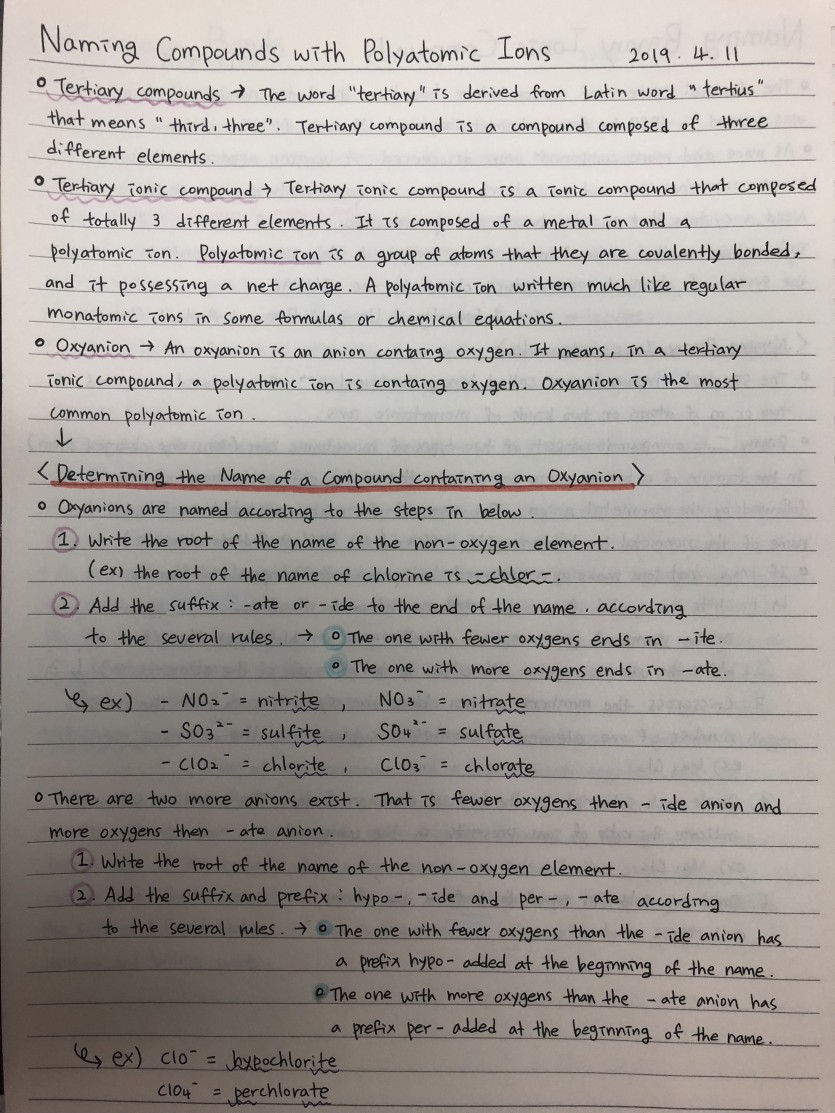 Naming Compounds with Polyatomic Ions 2019. 4. 11
Tertiary compounds → The word "tertiary" is derived from Latin word "tertius"
that means "third, three". Tertiary compound is a compound composed of three
different elements.
Tertiary ionic compound → Tertiary ionic compound is a ionic compound that composed
of totally 3 different elements. It is composed of a metal ion and a
polyatomic ion. Polyatomic ion is a group of atoms that they are covalently bonded,
and it possessing a net charge. A polyatomic ion written much like regular
monatomic ions in some formulas or chemical equations.
Oxyanion → An oxyanion is an anion containg oxygen. It means, in a tertiary
ionic compound, a polyatomic ion is containg oxygen. Oxyanion is the most
common polyatomic ion.
↓
< Determining the Name of a Compound containing an Oxyanion >
Oxyanions are named according to the steps in below.
1. Write the root of the name of the non-oxygen element.
(ex) the root of the name of chlorine is -chlor-.
2. Add the suffix : -ate or -ide to the end of the name, according
to the several rules. → The one with fewer oxygens ends in -ite.
The one with more oxygens ends in -ate.
↳ ex) - NO₂⁻ = nitrite, NO₃⁻ = nitrate
- SO₃²⁻ = sulfite, SO₄²⁻ = sulfate
- ClO₂⁻ = chlorite, ClO₃⁻ = chlorate
There are two more anions exist. That is fewer oxygens then -ide anion and
more oxygens then -ate anion.
1. Write the root of the name of the non-oxygen element.
2. Add the suffix and prefix : hypo-, -ide and per-, -ate according
to the several rules. → The one with fewer oxygens than the -ide anion has
a prefix hypo- added at the beginning of the name.
The one with more oxygens than the -ate anion has
a prefix per- added at the beginning of the name.
↳ ex) ClO⁻ = hypochlorite
ClO₄⁻ = perchlorate